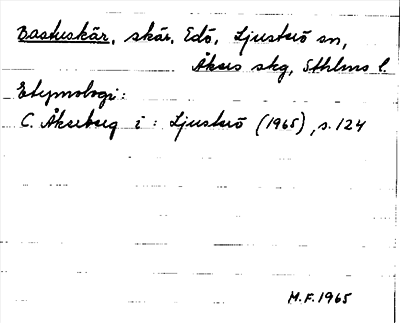 Bastuskär, skär, Edö, Ljusterö sn,
Åkers skg, Sthlms l.
Etymologi:
C. Åkerberg i: Ljusterö (1965), s. 124
M.F. 1965